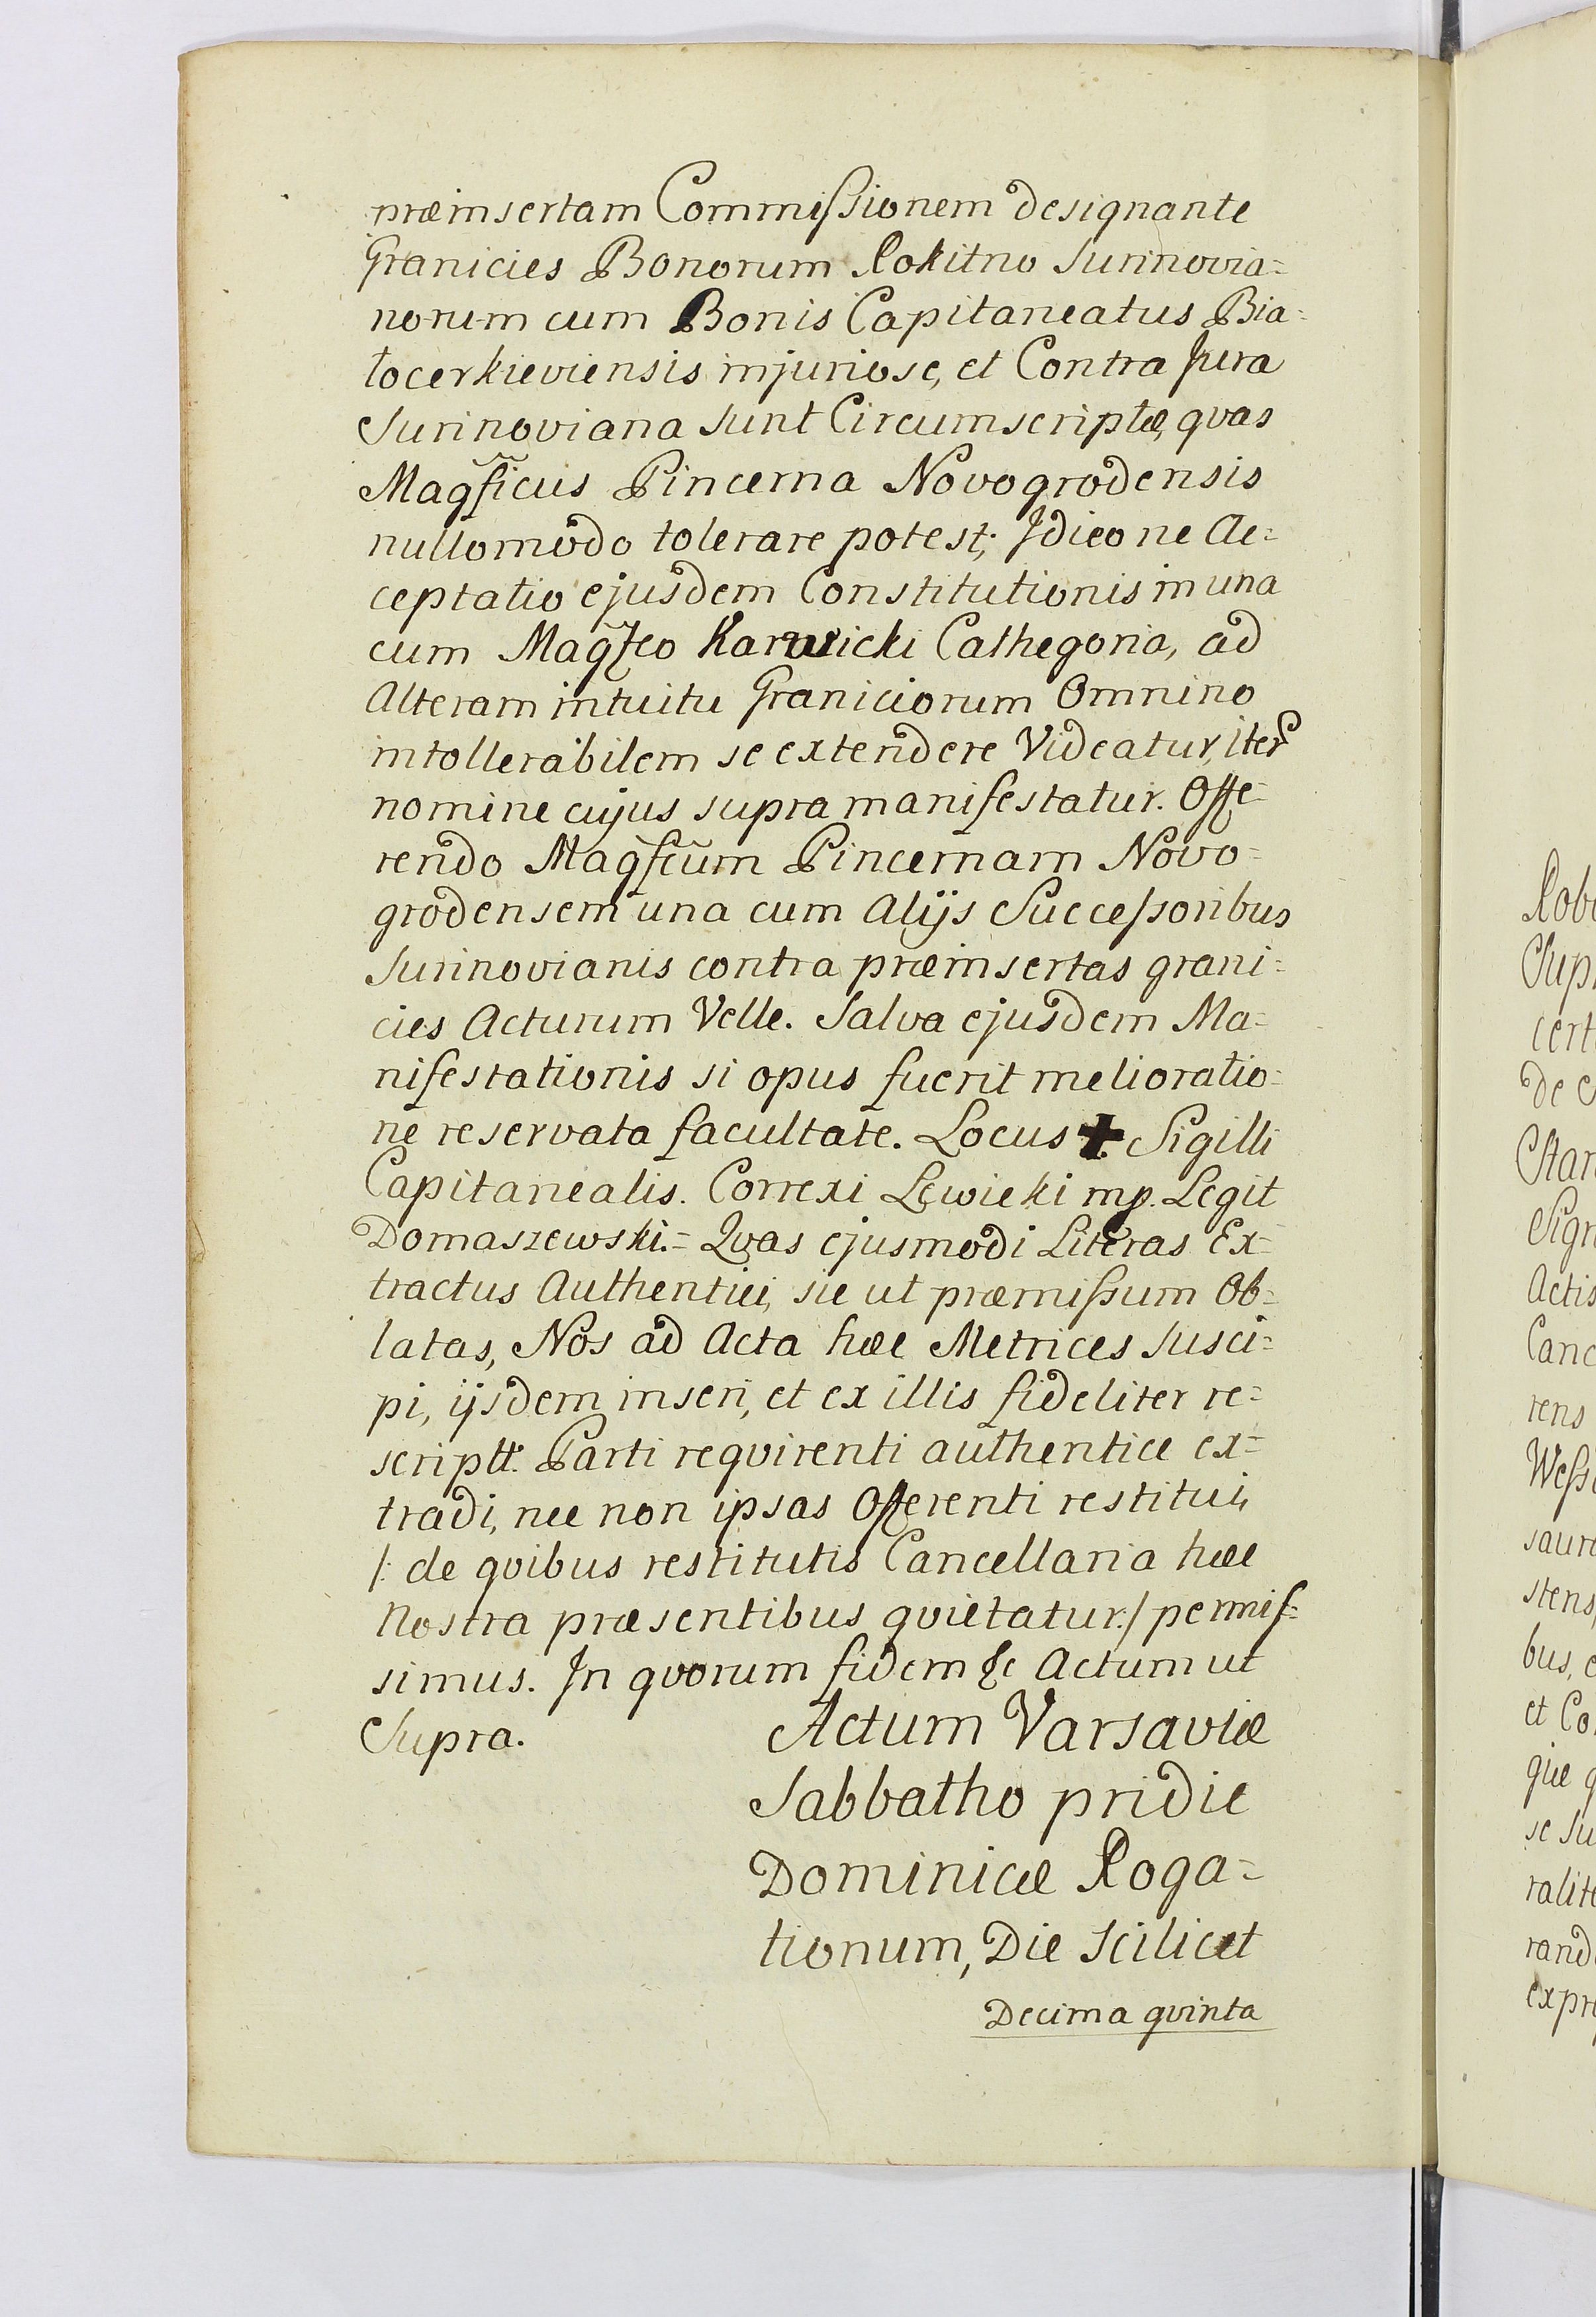 præinsertam Commiſsionem designante
Granicies Bonorum Rokitno Surinovia=
norum cum Bonis Capitaneatus Bia=
łocerkieviensis injuriose, et Contra Jura
Surinoviana sunt Circumscriptæ, qvas
Magfĩcus Pincerna Novogrodensis
nullomodo tolerare potest; Idieo ne Ac=
ceptatio ejusdem Constitutionis in una
cum Magfco Karwicki Cathegoria, ad
Alteram intuitu Graniciorum Omnino
intollerabilem se extendere Videatur, iter
nomine cujus supra manifestatur. Offe=
rendo Magfcum Pincernam Novo=
grodensem una cum Alijs Succeſsoribus
Surinovianis contra præinsertas grani=
cies Acturum Velle. Salva ejusdem Ma=
nifestationis si opus fuerit melioratio=
ne reservata facultate. Locus ✚ Sigilli
Capitanealis. Correxi Lewicki mp. Legit
Domaszewski.= Qvas ejusmodi Literas Ex=
tractus Authentici, sic ut præmiſsum Ob=
latas, Nos ad Acta hæc Metrices susci=
pi, ijsdem inseri, et ex illis fideliter re=
scriptt. Parti reqvirenti authentice ex=
tradi, nec non ipsas Offerenti restitui,
/: de qvibus restitutis Cancellaria hæc
Nostra præsentibus qvietatur./ permiſ=
simus. In qvorum fidem &c Actum ut
Supra.
Actum Varsaviæ
Sabbatho pridie
Dominicæ Roga=
tionum, Die Scilicet
Decima qvinta